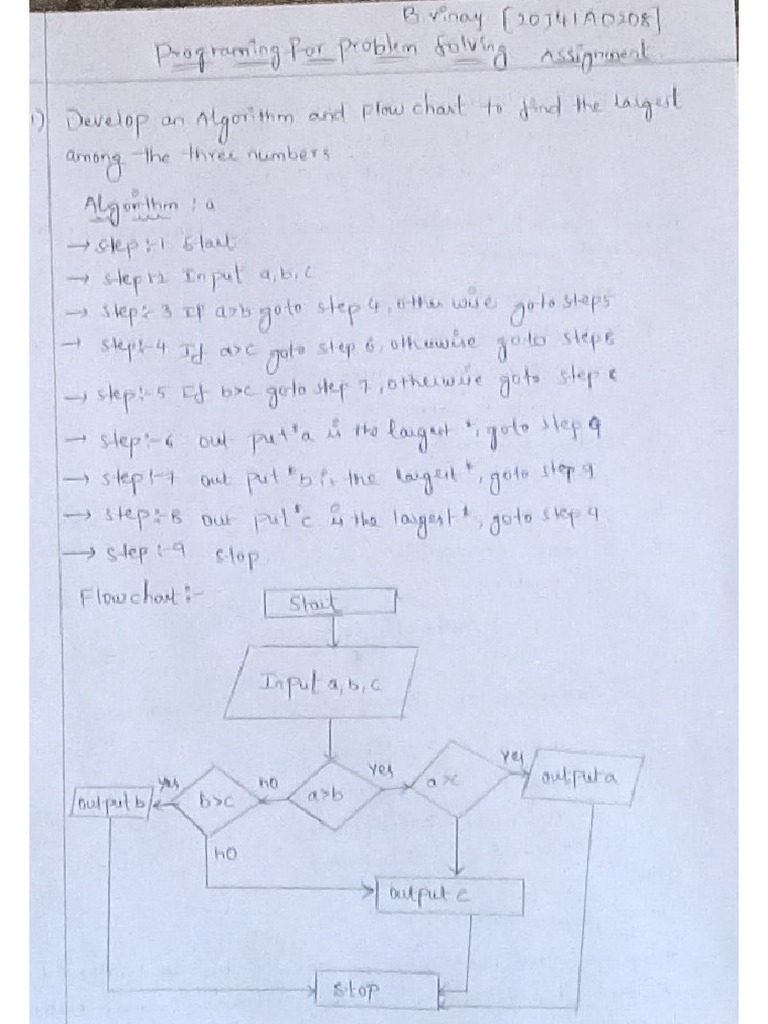 B.vinay [20J41A0208]
Programing For problem Solving Assignment.
1) Develop an Algorithm and Flow chart to find the largest
among the three numbers
Algorithm : a
→ step:-1 Start
→ step:-2 Input a,b,c
→ step:-3 If a>b goto step 4, otherwise goto step5
→ step:-4 If a>c goto step 6, otherwise goto step 8
→ step:-5 If b>c goto step 7, otherwise goto step 8
→ step:-6 out put "a is the largest", goto step 9
→ step:-7 out put "b is the largest", goto step 9
→ step:-8 out put "c is the largest", goto step 9
→ step:-9 stop
Flowchart:-
Start
Input a, b, c
yes no yes yes
output b b>c a>b a>c output a
no
output c
stop